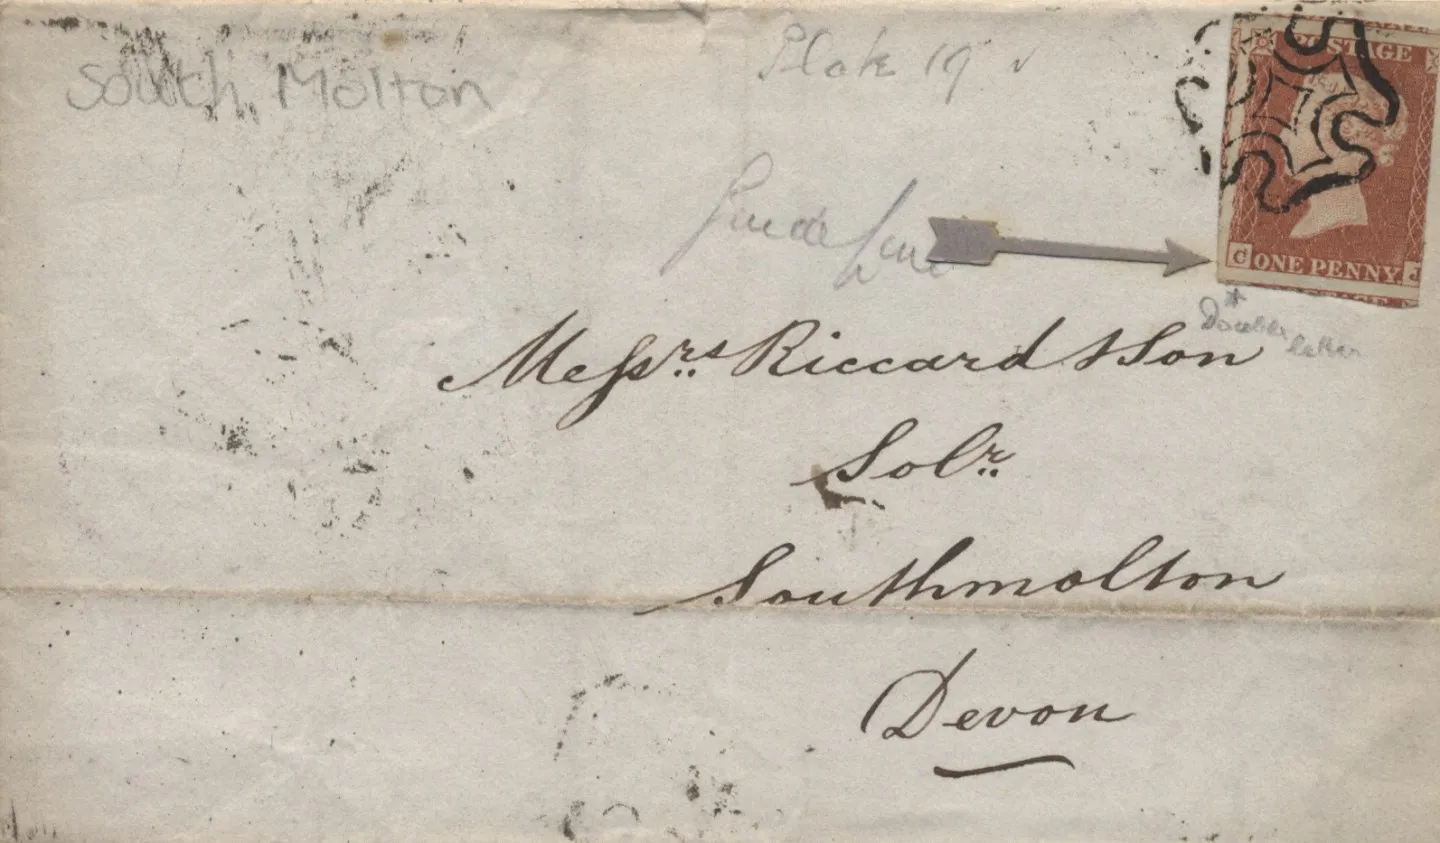 South Molton
Plate 19 ✓
POSTAGE
Guide Line
C ONE PENNY J
Double
letter
Messrs Riccard & Son
Solr
Southmolton
Devon